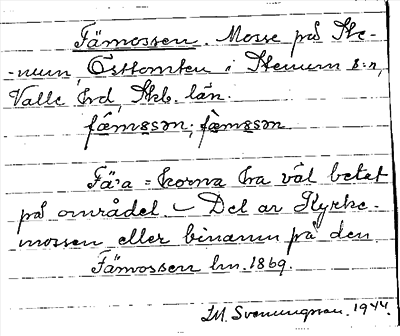 Fämossen. Mosse på Ste-
-num, Östtomten i Stenum s:n,
Valle hd, Skb. län.
fämɷsən; fæmɷsən
Fä:a = korna ha väl betat
på området. – Del av Kyrke-
mossen eller binamn på den.
Fämossen lm. 1869.
Svenungsson. 1944.